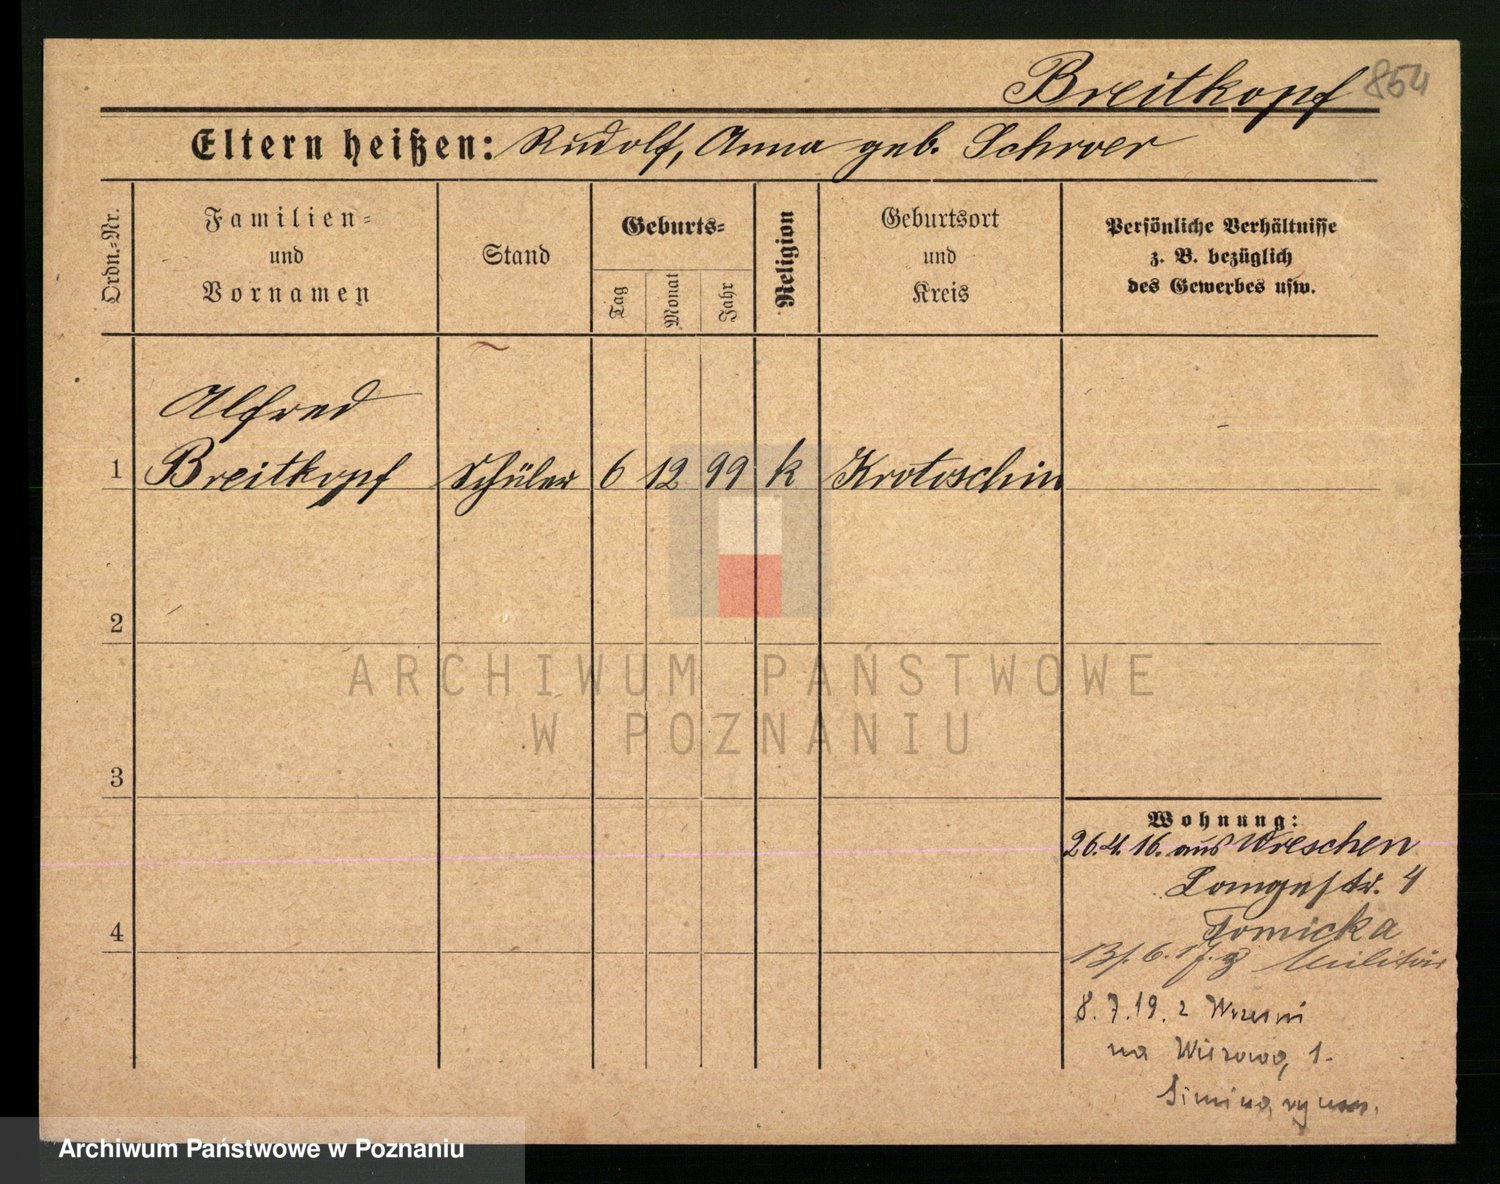 Breitkopf 854
Eltern heißen: Rudolf, Anna geb. Schroer
Ordn.=Nr.
Familien=
und
Vornamen
Stand
Geburts=
Tag
Monat
Jahr
Religion
Geburtsort
und
Kreis
Persönliche Verhältnisse
z. B. bezüglich
des Gewerbes usw.
Alfred
1 Breitkopf Schüler 6 12 99 k Krotoschin
2
3
4
Wohnung:
26.4.16. aus Wreschen
Langestr. 4
Tomicka
6.17. z Militär
8.7.19. z Wrześni
na 1.
ARCHIWUM PAŃSTWOWE
W POZNANIU
Archiwum Państwowe w Poznaniu